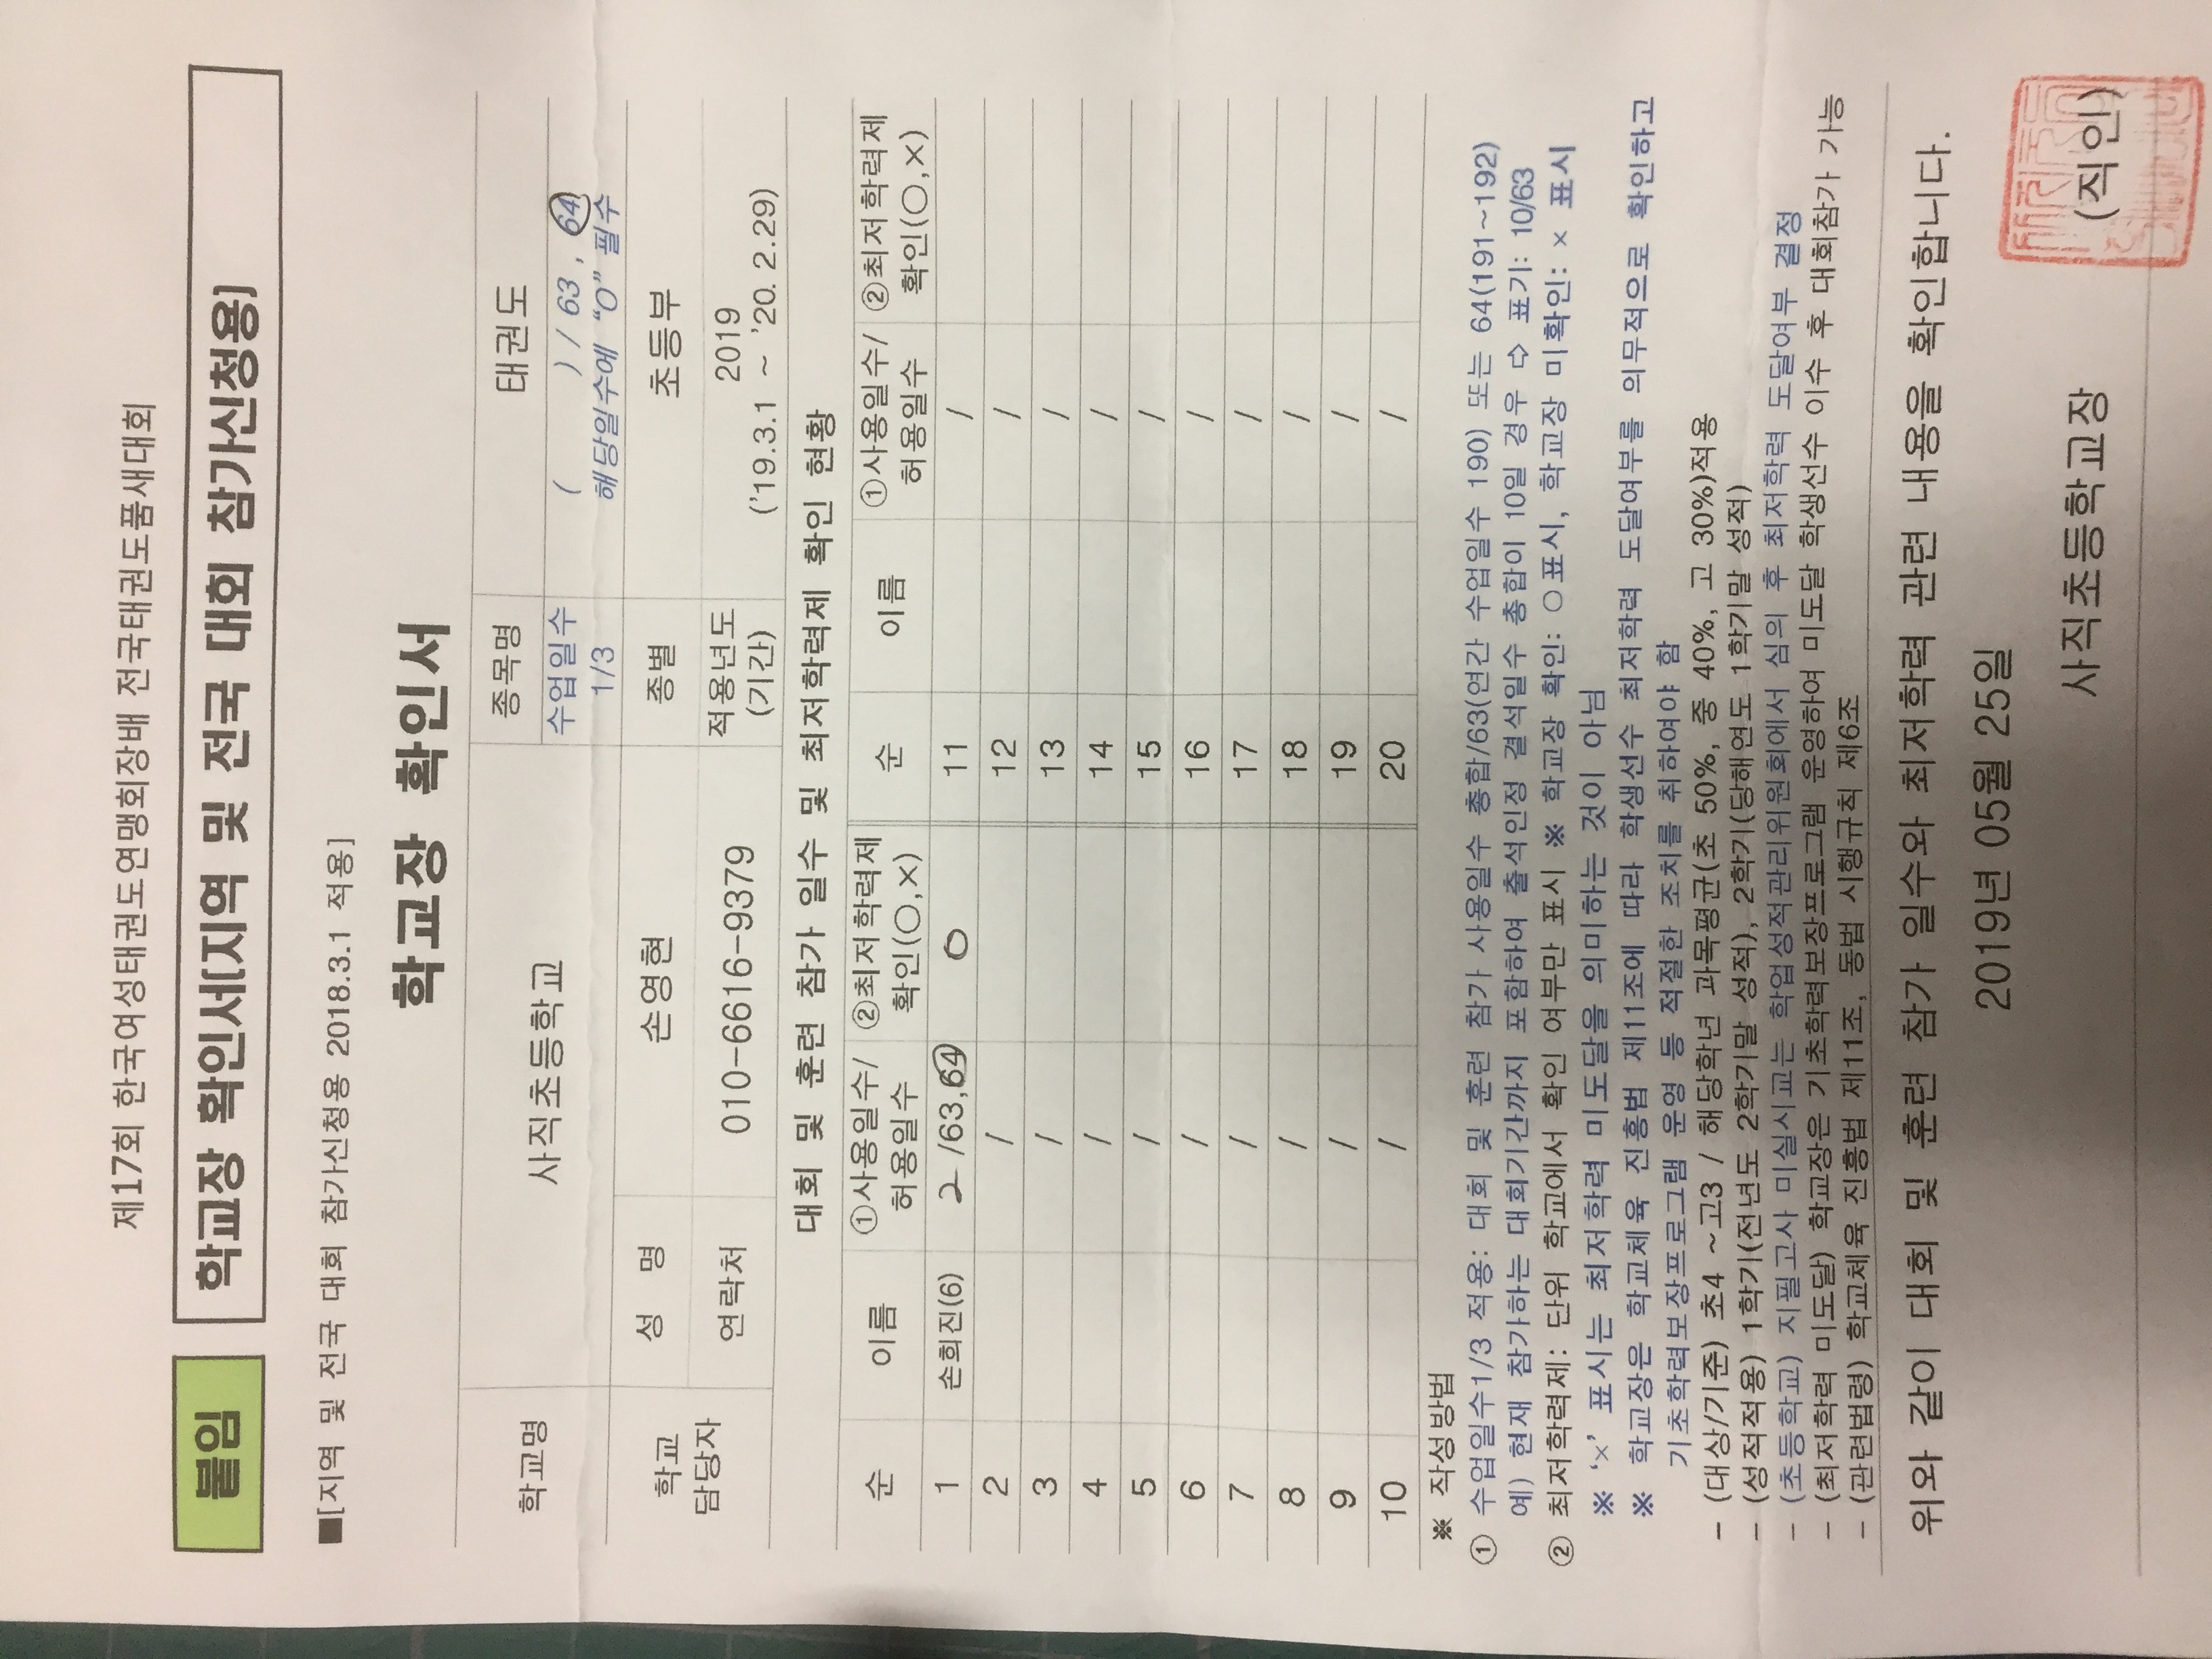 제17회 한국여성태권도연맹회장배 전국태권도품새대회
붙임 학교장 확인서[지역 및 전국 대회 참가신청용]
■[지역 및 전국 대회 참가신청용 2018.3.1 적용]
학교장 확인서
학교명 사직초등학교 종목명 태권도
수업일수 1/3 ( ) / 63 , 64
해당일수에 “O” 필수
학교 담당자 성 명 손영현 종별 초등부
연락처 010-6616-9379 적용년도 (기간) 2019
('19.3.1 ~ '20. 2.29)
대회 및 훈련 참가 일수 및 최저학력제 확인 현황
순 이름 ①사용일수/ 허용일수 ②최저학력제 확인(○,×) 순 이름 ①사용일수/ 허용일수 ②최저학력제 확인(○,×)
1 손희진(6) 2 /63,64 O 11 /
2 / 12 /
3 / 13 /
4 / 14 /
5 / 15 /
6 / 16 /
7 / 17 /
8 / 18 /
9 / 19 /
10 / 20 /
※ 작성방법
① 수업일수1/3 적용: 대회 및 훈련 참가 사용일수 총합/63(연간 수업일수 190) 또는 64(191~192)
예) 현재 참가하는 대회기간까지 포함하여 출석인정 결석일수 총합이 10일 경우 ⇨ 표기: 10/63
② 최저학력제: 단위 학교에서 확인 여부만 표시 ※ 학교장 확인: ○ 표시, 학교장 미확인: × 표시
※ ‘×’ 표시는 최저학력 미도달을 의미하는 것이 아님
※ 학교장은 학교체육 진흥법 제11조에 따라 학생선수 최저학력 도달여부를 의무적으로 확인하고
기초학력보장프로그램 운영 등 적절한 조치를 취하여야 함
- (대상/기준) 초4 ~고3 / 해당학년 과목평균(초 50%, 중 40%, 고 30%)적용
- (성적적용) 1학기(전년도 2학기말 성적), 2학기(당해연도 1학기말 성적)
- (초등학교) 지필고사 미실시교는 학업성적관리위원회에서 심의 후 최저학력 도달여부 결정
- (최저학력 미도달) 학교장은 기초학력보장프로그램 운영하여 미도달 학생선수 이수 후 대회참가 가능
- (관련법령) 학교체육 진흥법 제11조, 동법 시행규칙 제6조
위와 같이 대회 및 훈련 참가 일수와 최저학력 관련 내용을 확인합니다.
2019년 05월 25일
사직초등학교장 (직인)